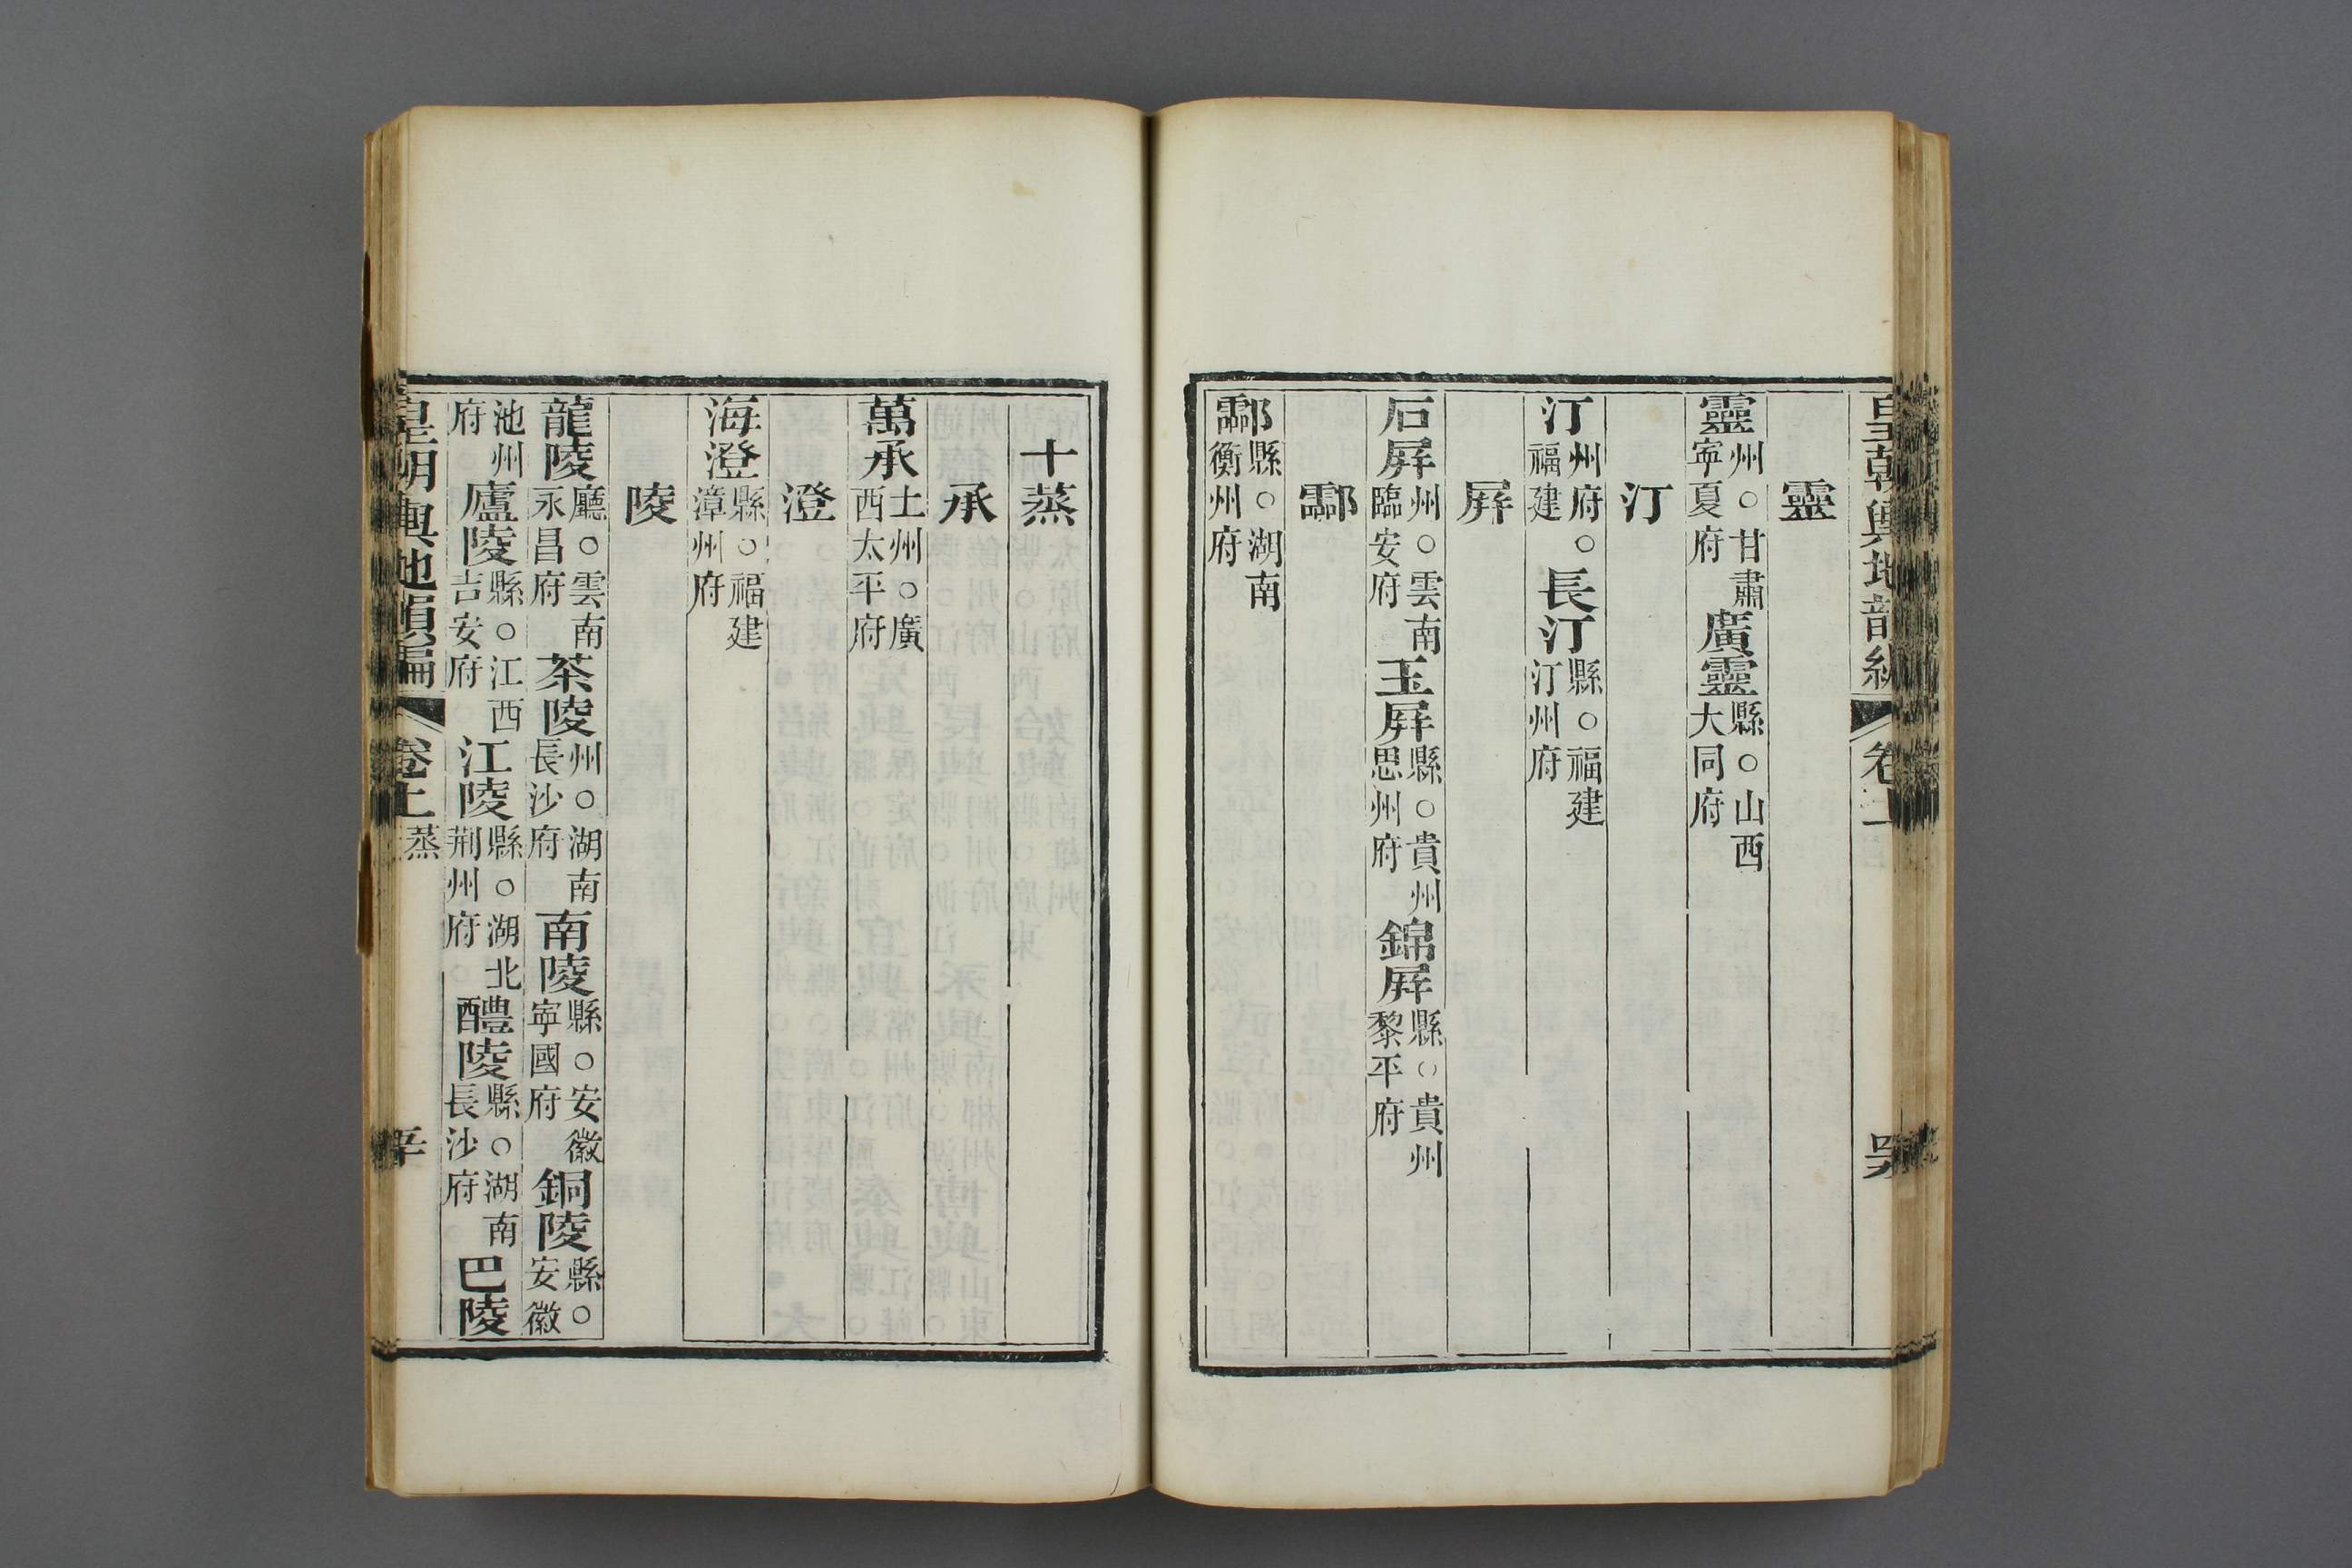 皇朝輿地韻編 卷上
靈
靈州○甘肅寧夏府 廣靈縣○山西大同府
汀
汀州府○福建 長汀縣○福建汀州府
屛
石屛州○雲南臨安府 玉屛縣○貴州思州府 錦屛縣○貴州黎平府
酃
酃縣○湖南衡州府
十蒸
承
萬承土州○廣西太平府
澄
海澄縣○福建漳州府
陵
龍陵廳○雲南永昌府 茶陵州○湖南長沙府 南陵縣○安徽寧國府 銅陵縣○安徽
池州府 廬陵縣○江西吉安府 江陵縣○湖北荆州府 醴陵縣○湖南長沙府 巴陵
皇朝輿地韻編 卷上 蒸